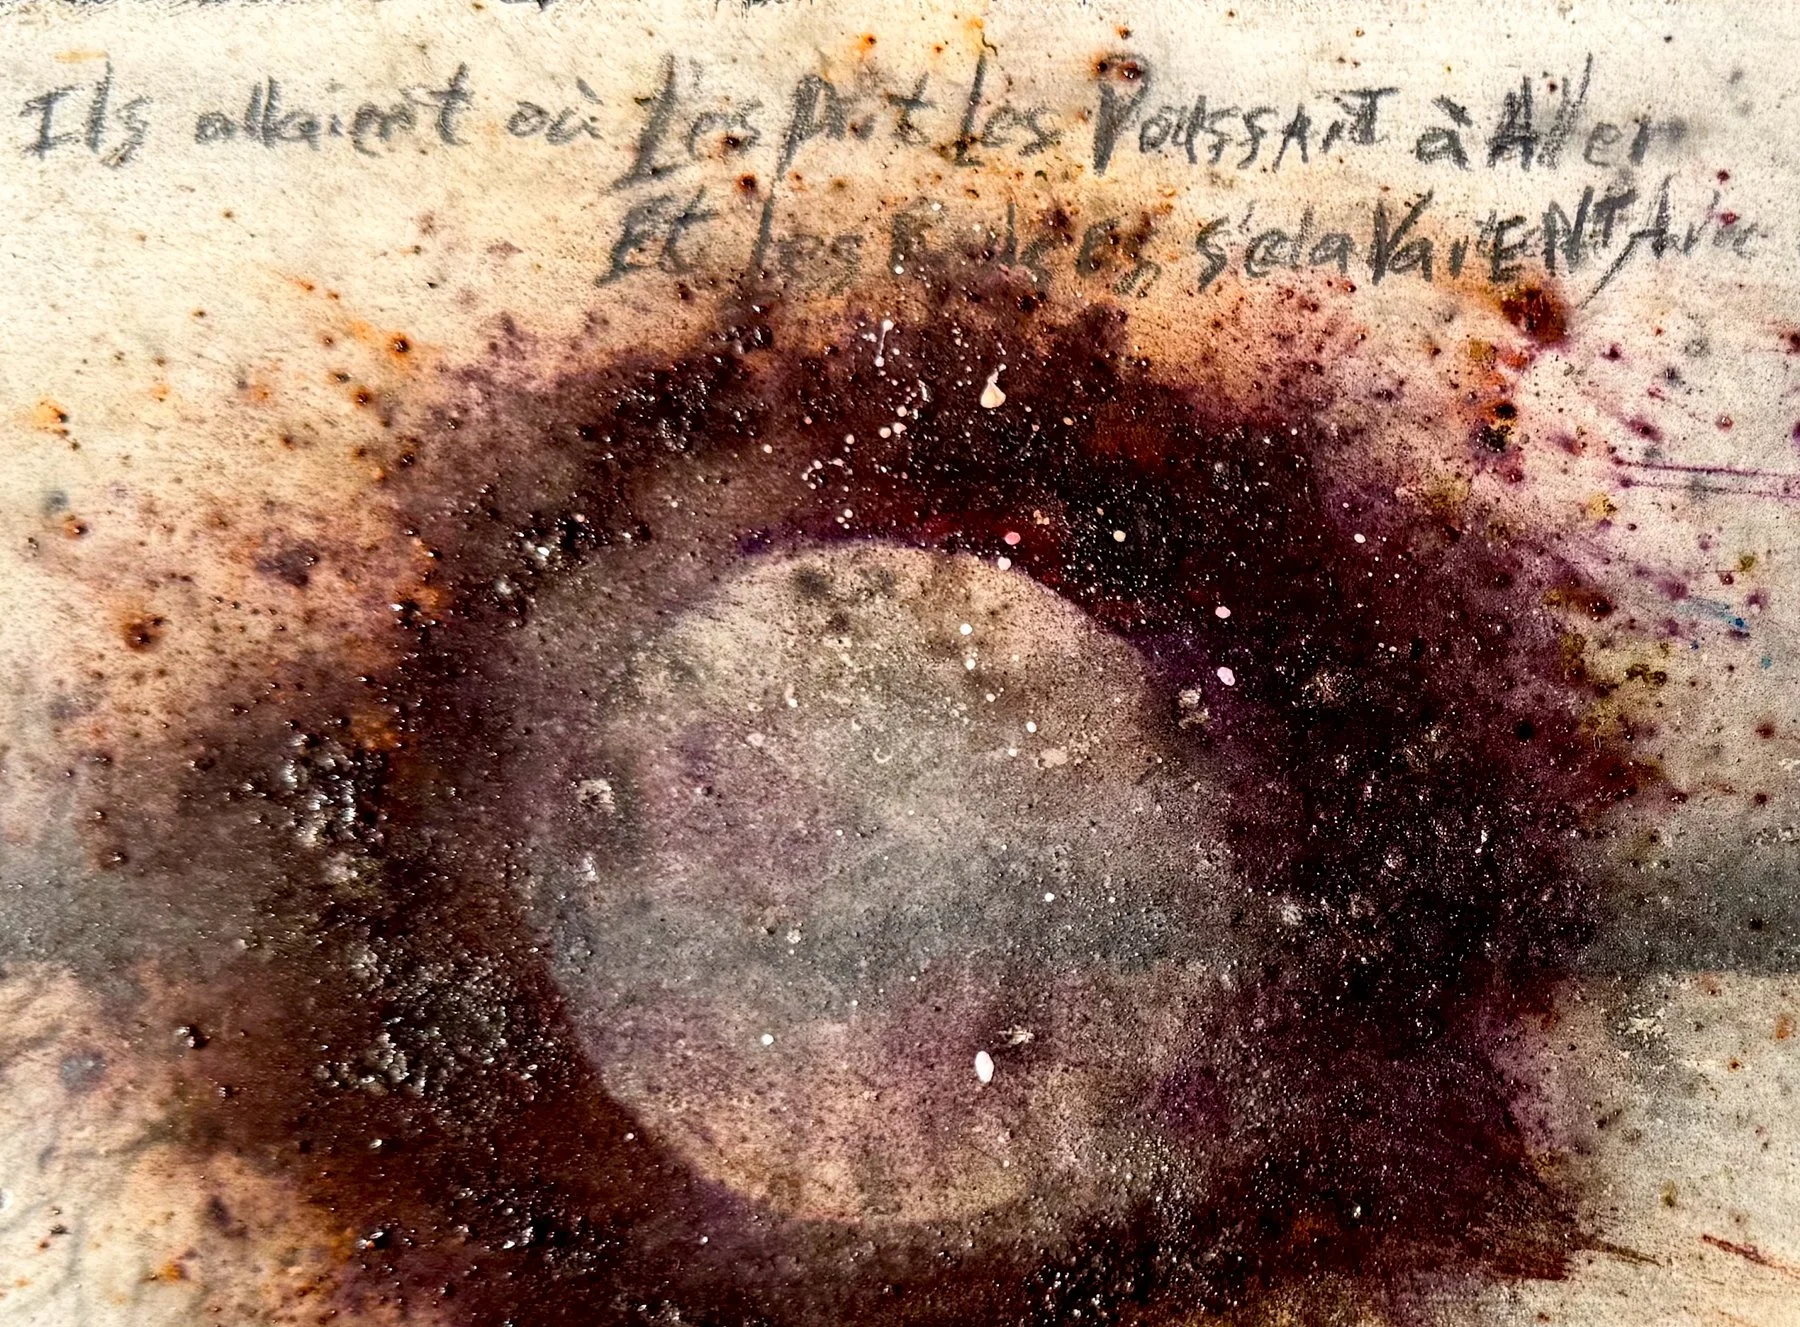 Ils allaient où L'esprit Les PoussAiT à Aller
Et les Roues s'élevaiENT Avec